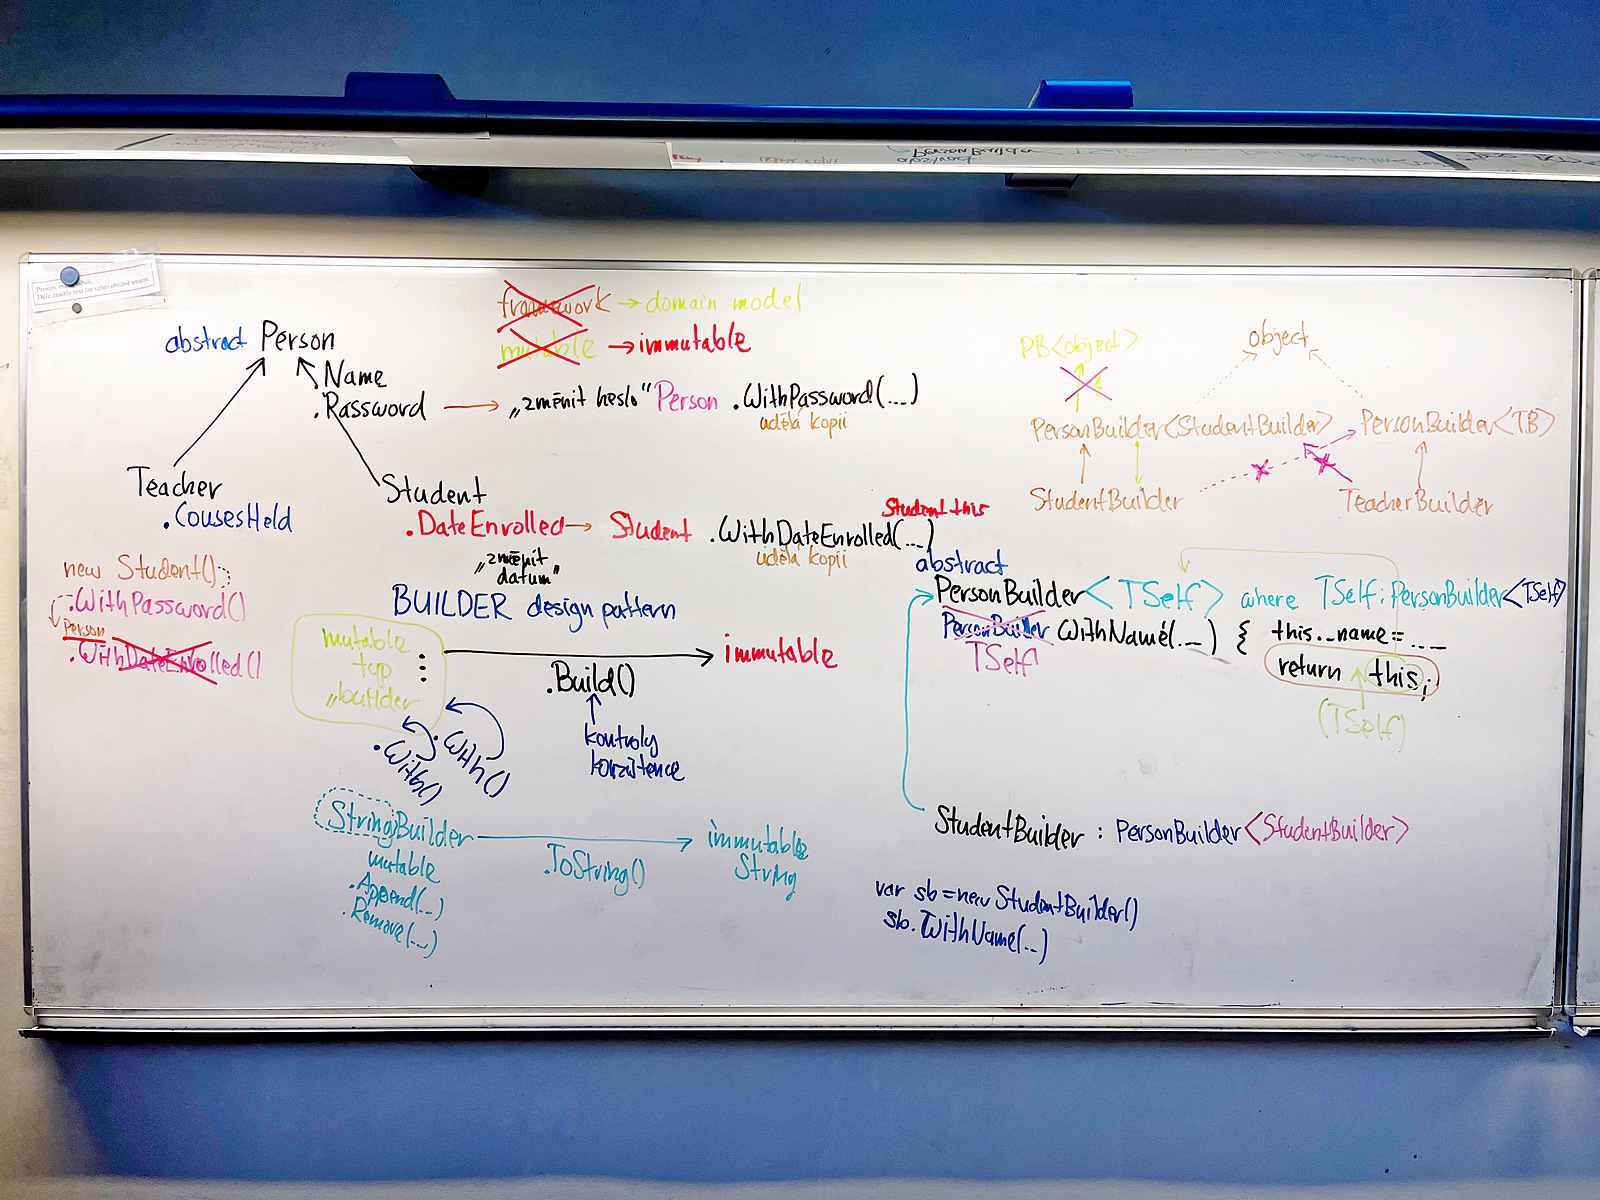 Prosím, 
Déle zaschlý text lze velmi obtížně smazat.
framework → domain model
mutable → immutable
abstract Person
.Name
.Password → „změnit heslo“ Person .WithPassword(...)
udělá kopii
Teacher
.CousesHeld
Student
.DateEnrolled → Student .WithDateEnrolled(...)
Student this
„změnit
datum“
udělá kopii
new Student()
.WithPassword()
Person
.WithDateEnrolled()
BUILDER design pattern
mutable
typ
„builder
immutable
.Build()
kontroly
konzistence
.With()
.With()
StringBuilder
mutable
.Append(...)
.Remove(...)
.ToString()
immutable
String
PB<object>
object
PersonBuilder<StudentBuilder>
PersonBuilder<TB>
StudentBuilder
TeacherBuilder
abstract
PersonBuilder<TSelf> where TSelf : PersonBuilder<TSelf>
PersonBuilder WithName(...) { this._name = ...
TSelf
return this;
(TSelf)
StudentBuilder : PersonBuilder<StudentBuilder>
var sb = new StudentBuilder()
sb.WithName(...)